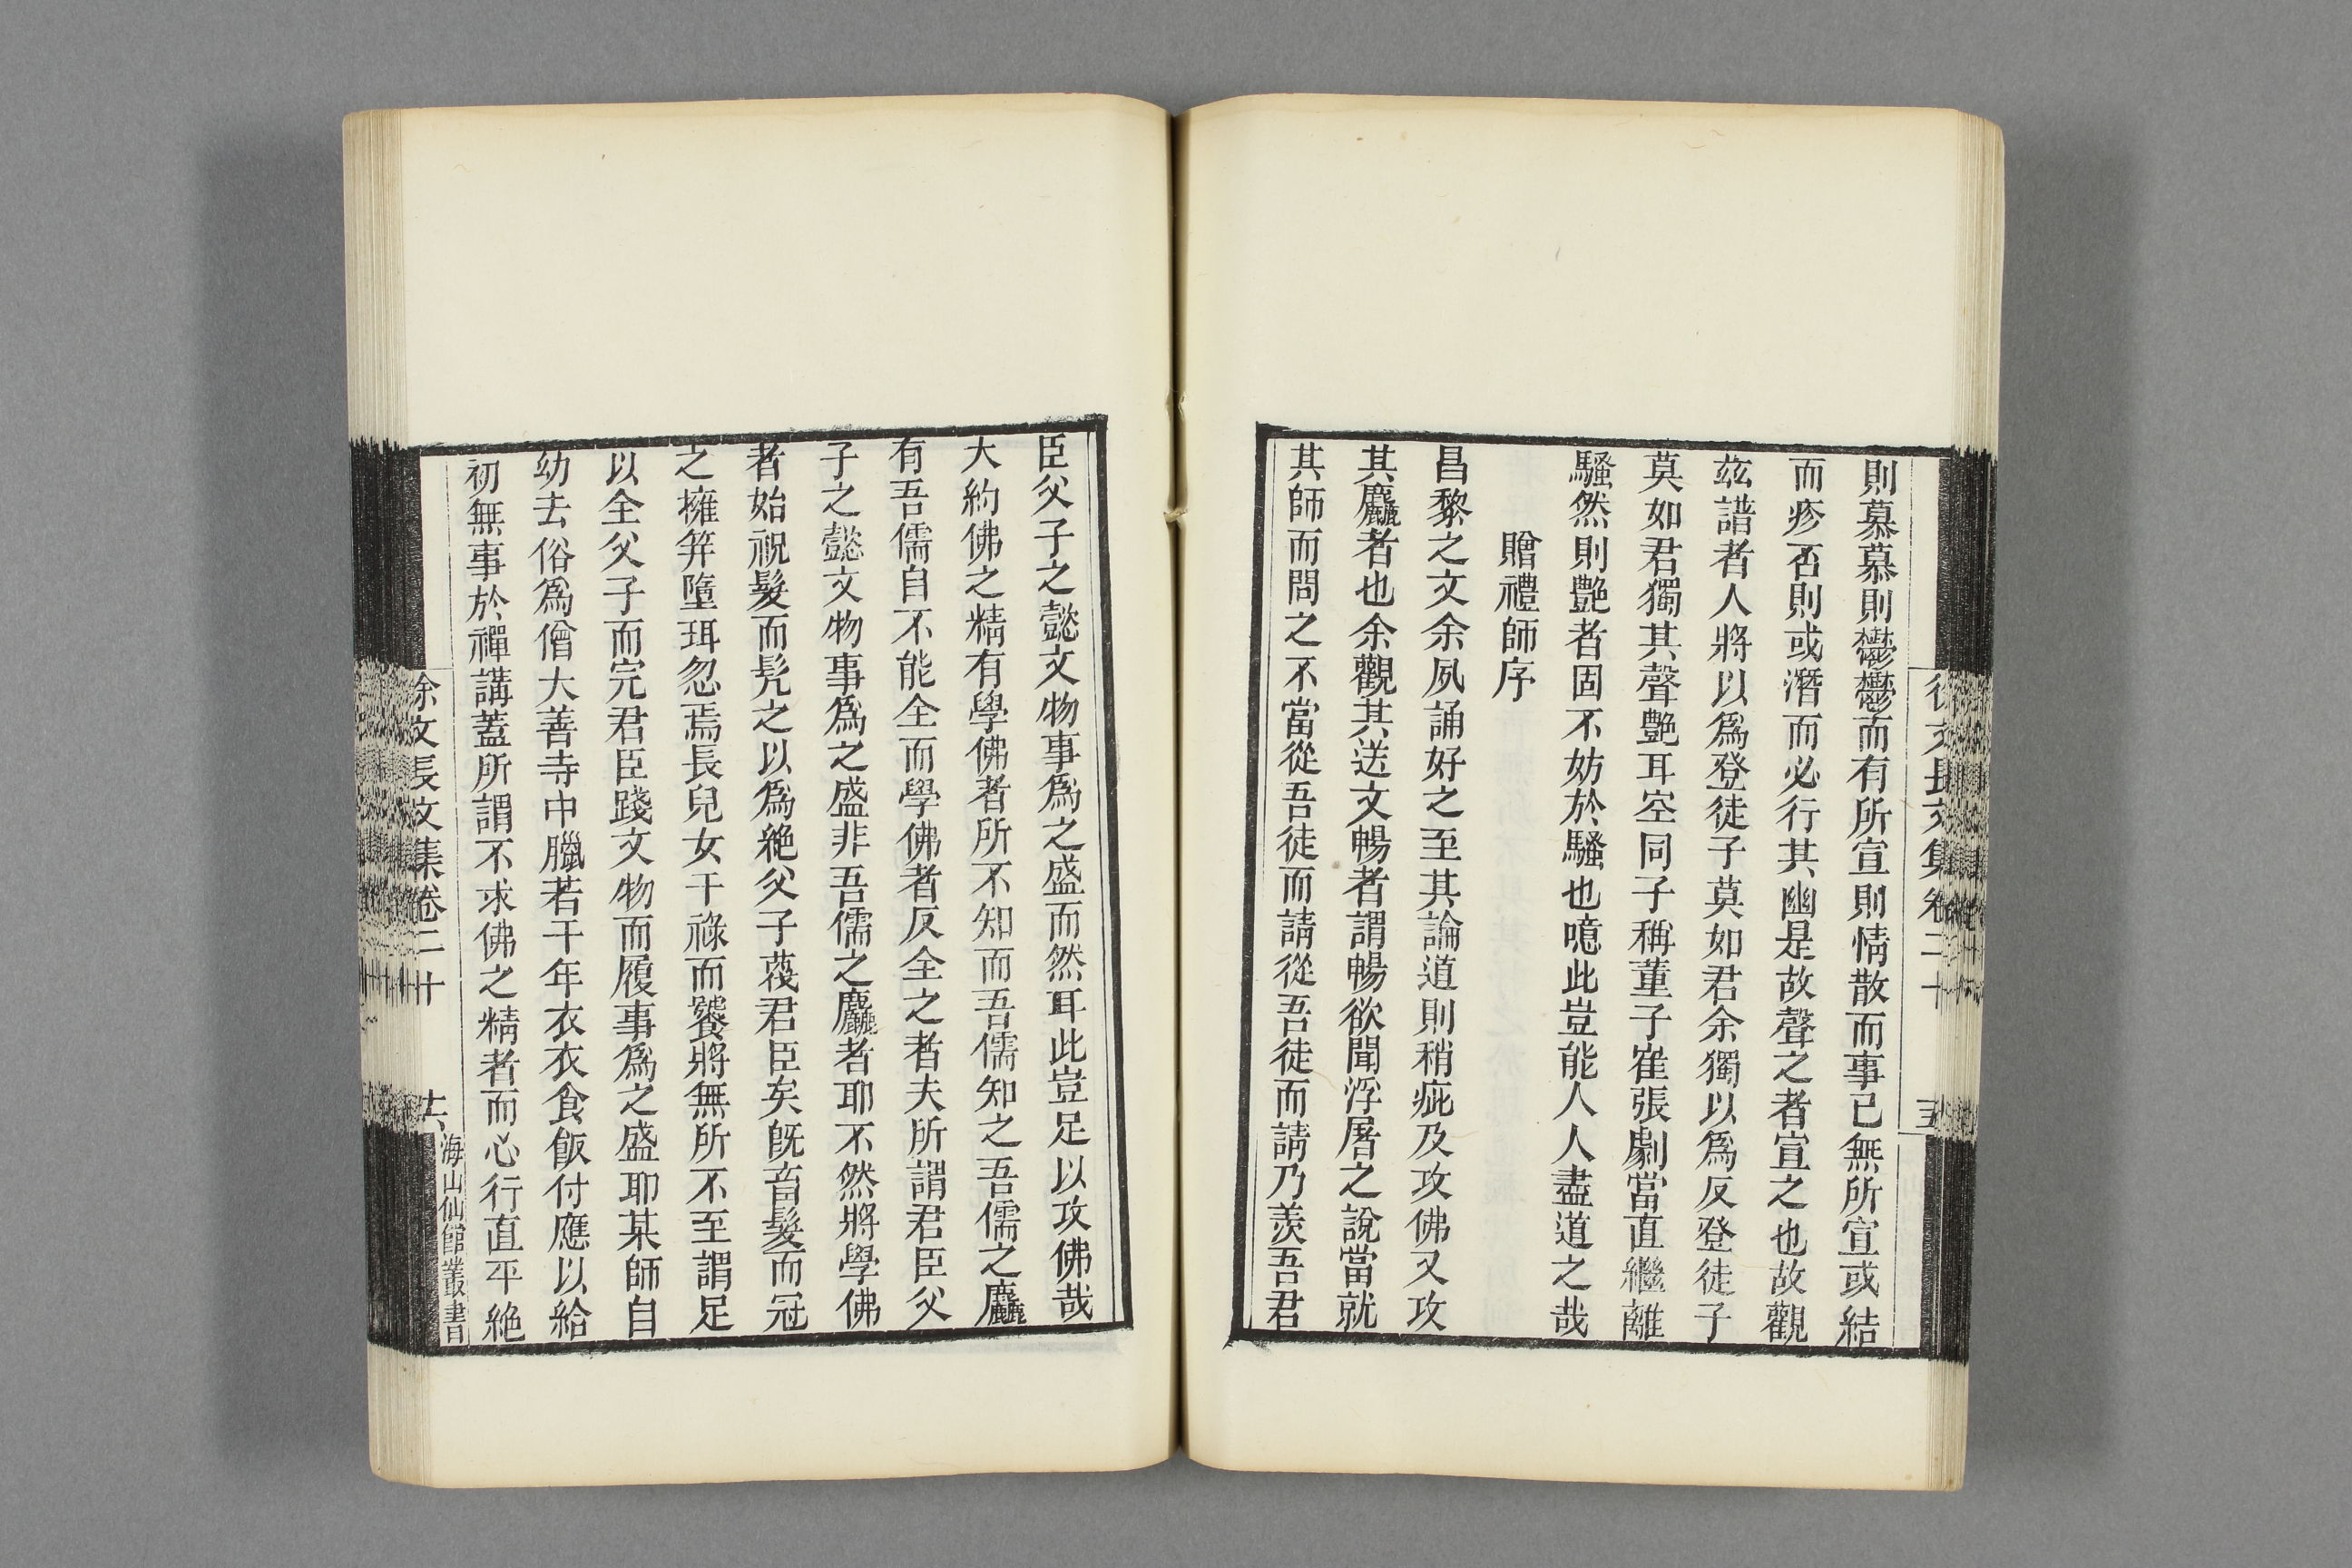 徐文長文集卷二十
五
則慕慕則鬱鬱而有所宣則情散而事已無所宣或結
而疹否則或潛而必行其幽是故聲之者宣之也故觀
玆譜者人將以爲登徒子莫如君余獨以爲反登徒子
莫如君獨其聲艶耳空同子稱董子崔張劇當直繼離
騷然則艶者固不妨於騷也噫此豈能人人盡道之哉
贈禮師序
昌黎之文余夙誦好之至其論道則稍疵及攻佛又攻
其麤者也余觀其送文暢者謂暢欲聞浮屠之說當就
其師而問之不當從吾徒而請從吾徒而請乃羨吾君
臣父子之懿文物事爲之盛而然耳此豈足以攻佛哉
大約佛之精有學佛者所不知而吾儒知之吾儒之麤
有吾儒自不能全而學佛者反全之者夫所謂君臣父
子之懿文物事爲之盛非吾儒之麤者耶不然將學佛
者始祝髮而髡之以爲絶父子蔑君臣矣旣畜髮而冠
之擁笄墮珥忽焉長兒女干祿而饕將無所不至謂足
以全父子而完君臣踐文物而履事爲之盛耶某師自
幼去俗爲僧大善寺中臘若干年衣衣食飯付應以給
初無事於禪講蓋所謂不求佛之精者而心行直平絶
徐文長文集卷二十
六
海山仙館叢書